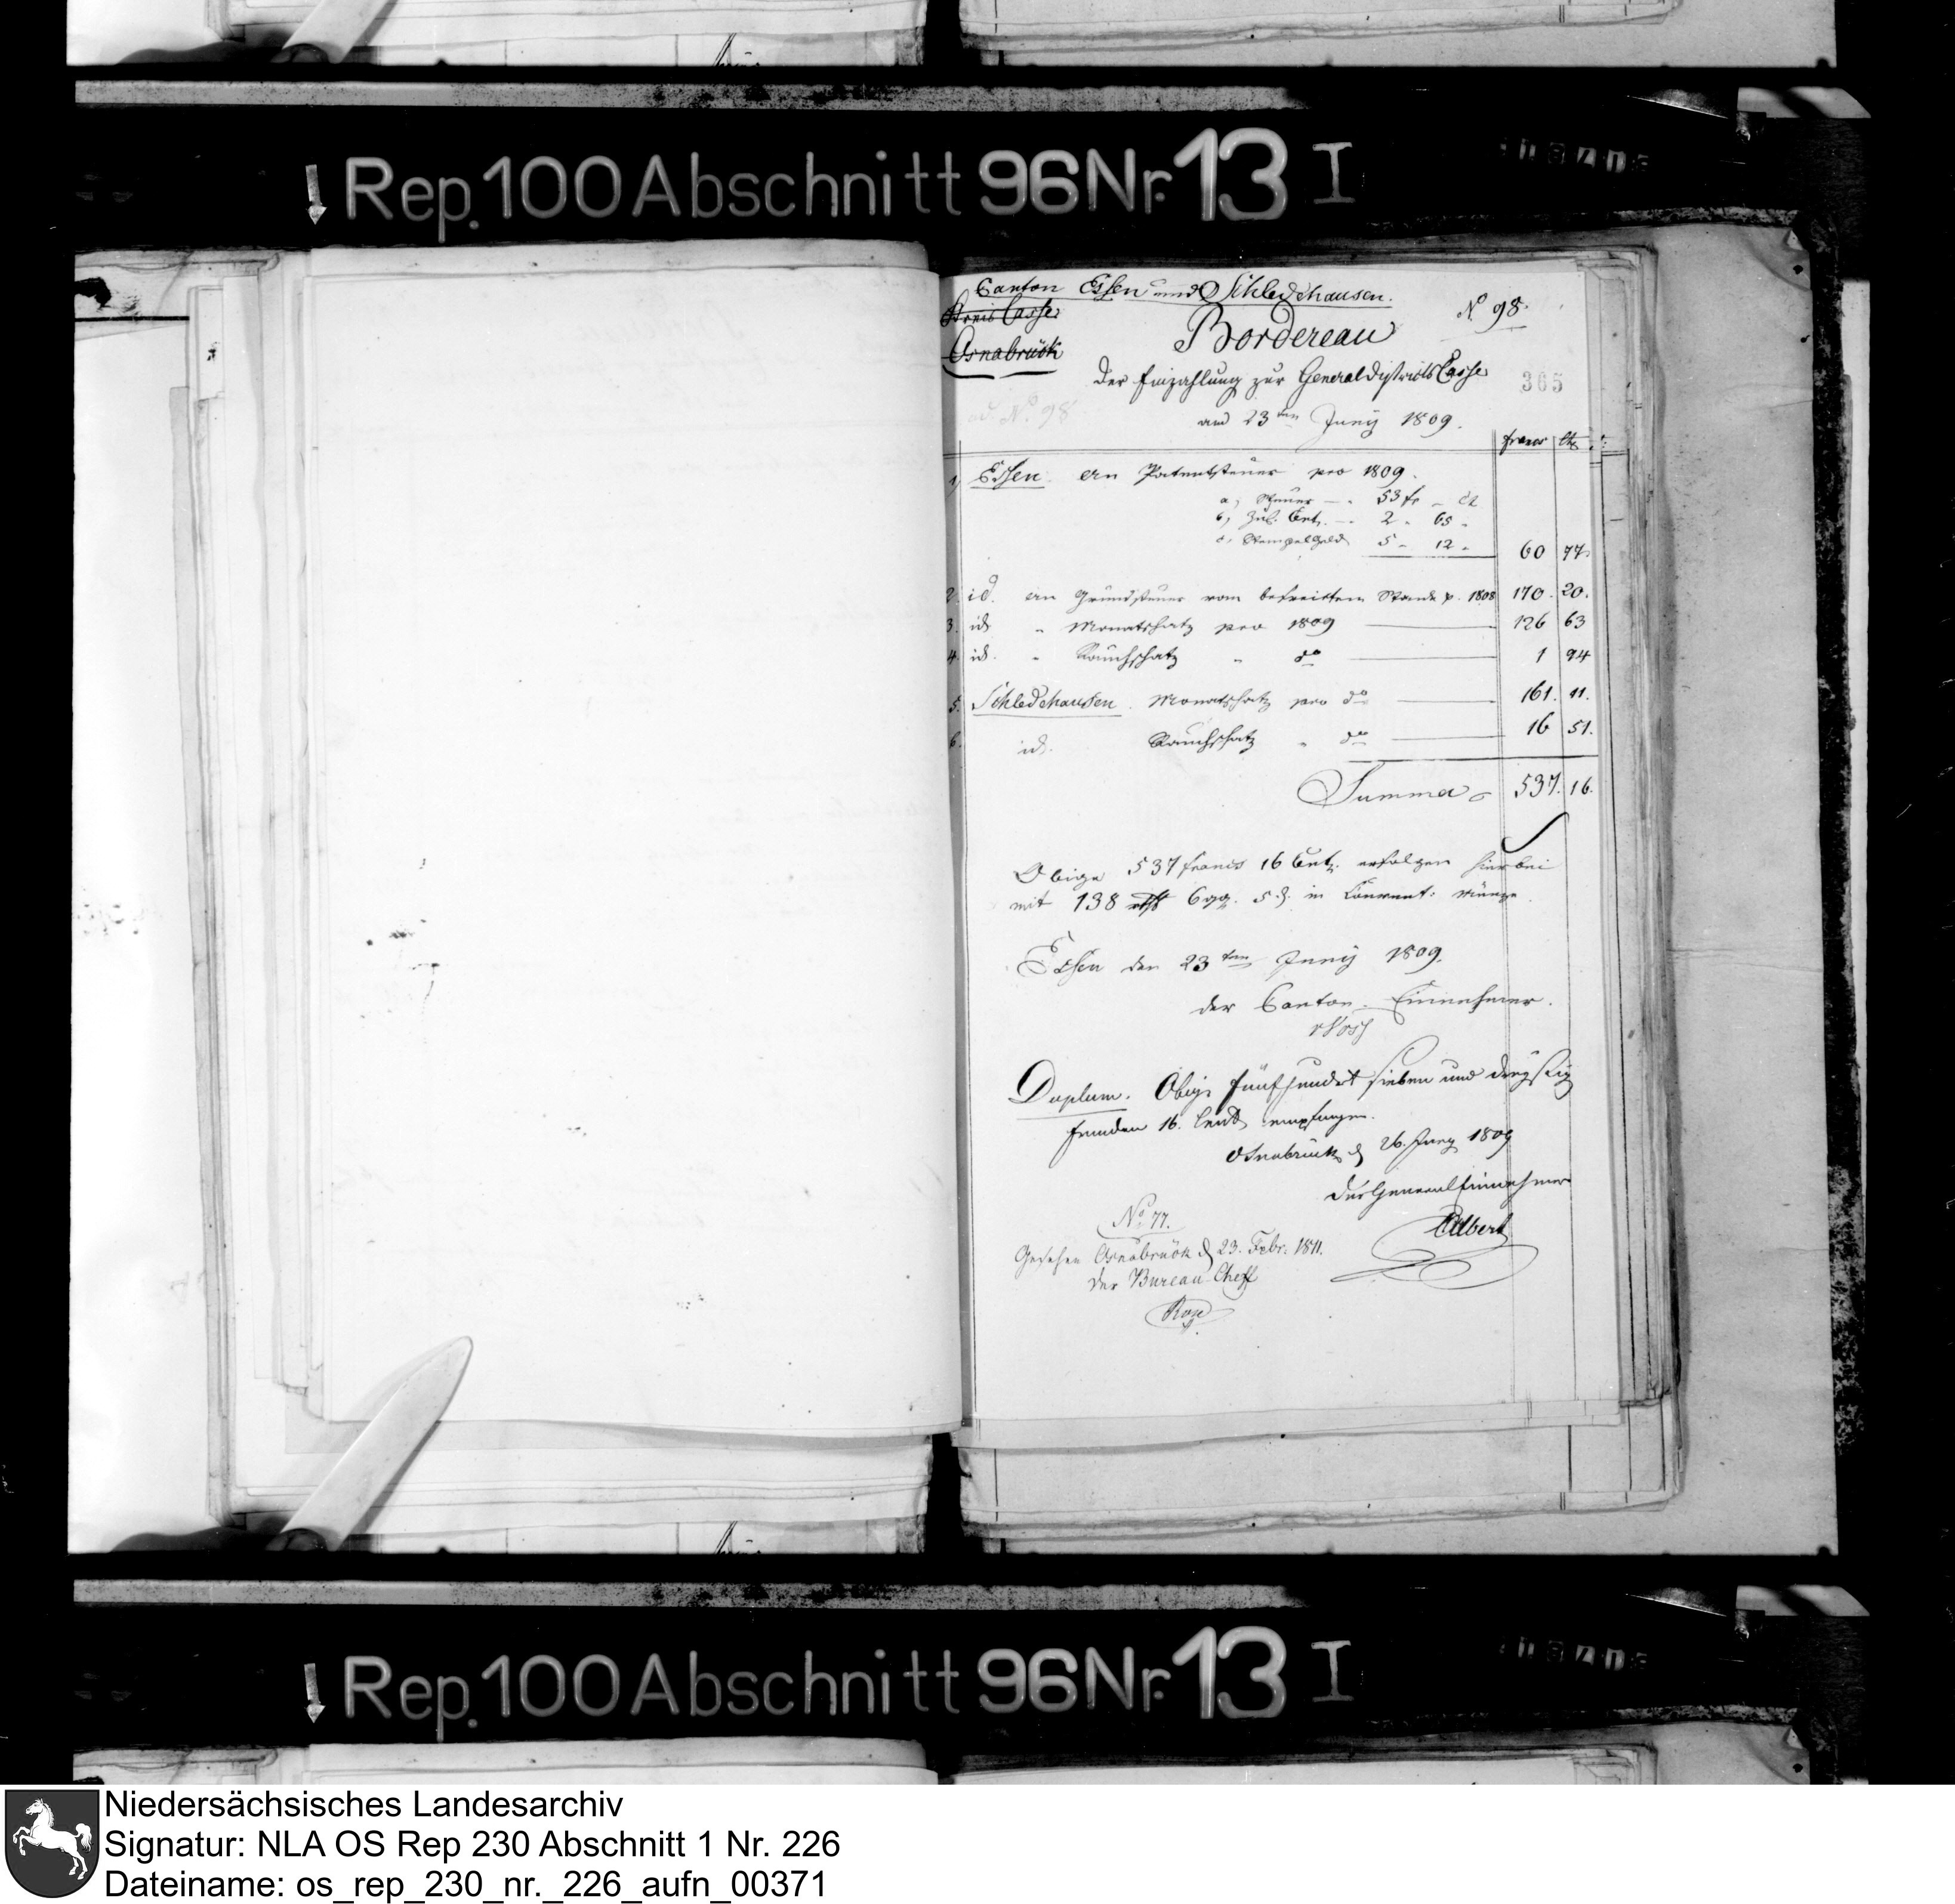 Rep. 100 Abschnitt 96 Nr. 13 I
Canton Essen und Schledehausen.
Kreis Casse
Osnabrück
N° 98.
Bordereau
der Einzahlung zur General Districts Casse
305
ad N° 98
am 23ten Juny 1809.
francs Ct.
1, Essen an Patentsteuer pro 1809.
a, Steuer — 53 fr — Ct
b, Zul. Cent. — 2 „ 65 „
c, Stempelgeld 5 „ 12 „ 60 77
2. id. an Grundsteuer vom befreiten Stande p. 1808 170. 20.
3. id. „ Monatschatz pro 1809 126 63
4. id. „ Rauchschatz „ do 1 94
5. Schledehausen. Monatschatz pro do 161. 11.
6. id. Rauchschatz „ do 16 51.
Summa 537. 16.
Obige 537 francs 16 Cent. erfolgen hierbei
mit 138 rthl 6 gg. 5 d. in Convent: Münze.
Essen den 23ten Juny 1809.
der Canton-Einnehmer.
Duplum. Obige fünfhundert sieben und dreyßig
Franken 16. Cent empfangen.
Osnabrück d 26. Juny 1809
Der General Einnehmer
Albert
No 77.
Gesehen Osnabrück d 23. Febr. 1811.
der Bureau-Cheff
Rep. 100 Abschnitt 96 Nr. 13 I
Niedersächsisches Landesarchiv
Signatur: NLA OS Rep 230 Abschnitt 1 Nr. 226
Dateiname: os_rep_230_nr._226_aufn_00371